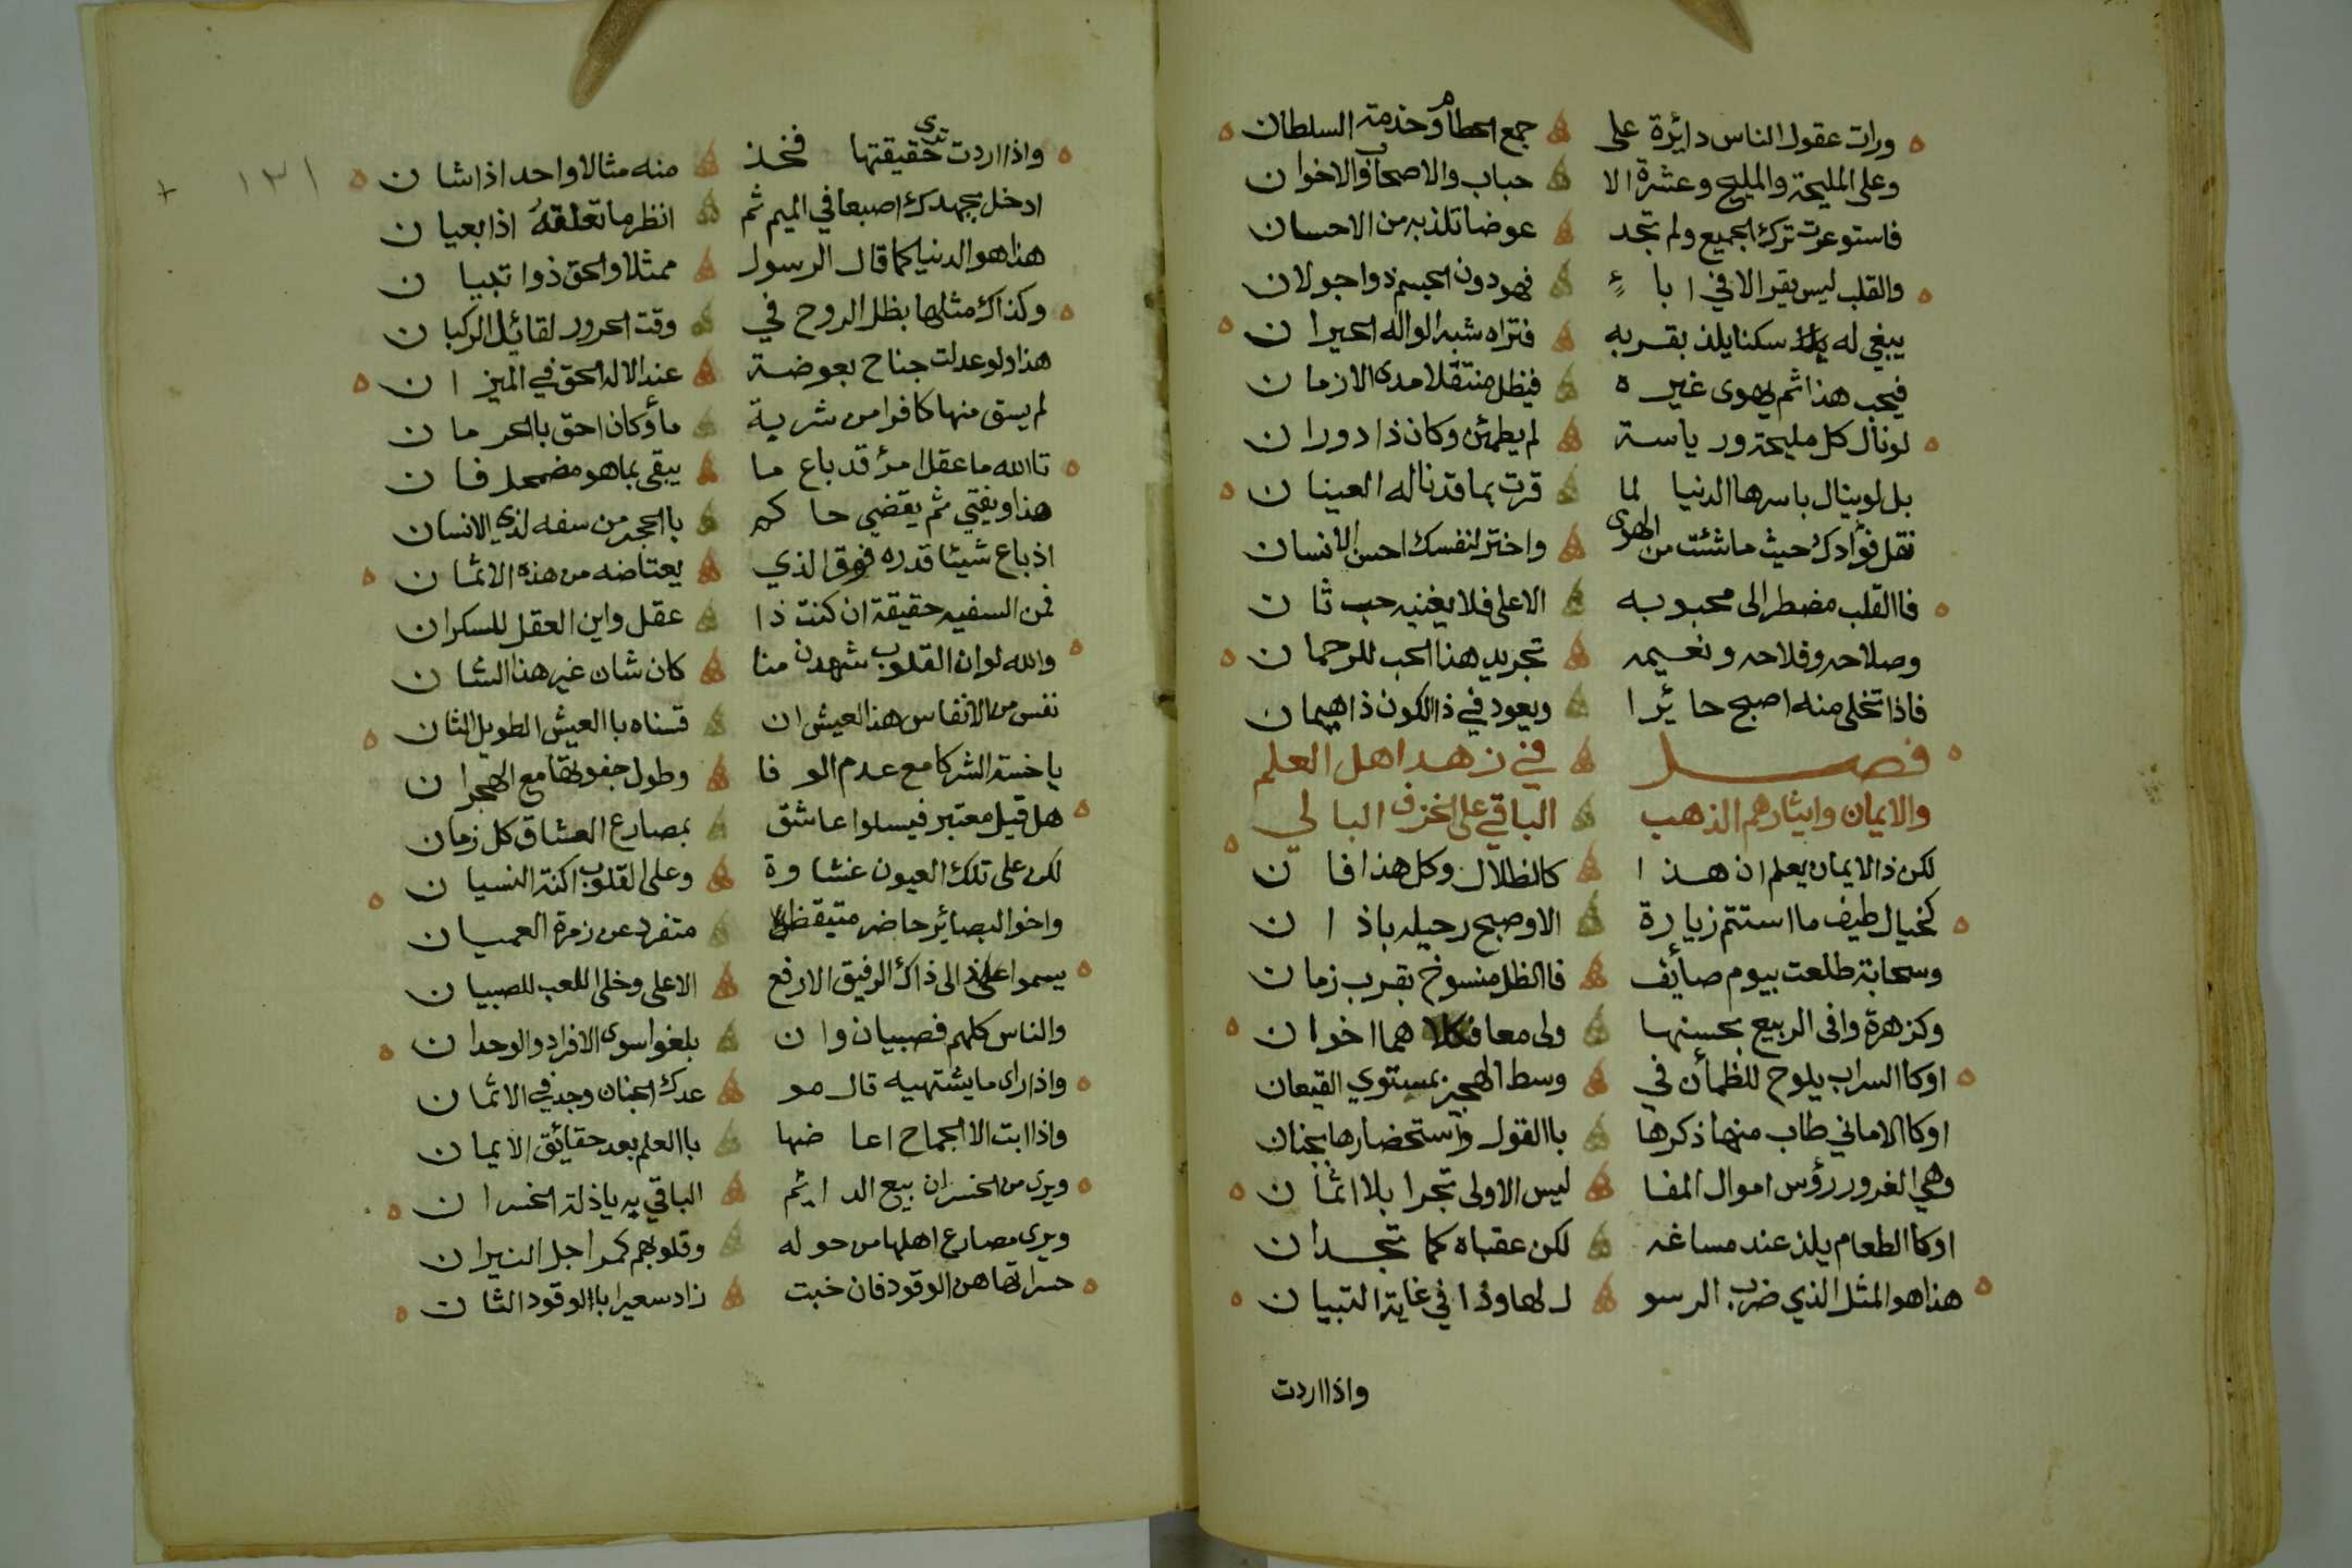 ورات عقول الناس دائرة على جمع الحطام وخدمة السلطان
وعلى المليحة والمليح وعشرة الا حباب والاصحاب والاخوان
فاستوعرت ترك الجميع ولم تجد عوضا تلذ به من الاحسان
والقلب ليس يقر الا في اباء فهو دون الجسم ذو اجولان
يبغي له سكنا يلذ بقربه فتراه شبه الواله الحيران
فيحب هذا ثم يهوى غيره فيظل منتقلا مدى الازمان
لو نال كل مليحة ورياسة لم يطمئن وكان ذا دوران
بل لو ينال باسرها الدنيا لما قرت بما قد ناله العينان
نقل فؤادك حيث ما شئت من الهوى واختر لنفسك احسن الانسان
فاالقلب مضطر الى محبوبه الاعلى فلا يغنيه حب ثان
وصلاحه وفلاحه ونعيمه تجريد هذا الحب للرحمان
فاذا تخلى منه اصبح حائرا ويعود في ذا الكون ذا هيمان
فصل في زهد اهل العلم
والايمان وايثارهم الذهب الباقي على الخزف البالي
لكن ذا الايمان يعلم ان هذا كالظلال وكل هذا فان
كخيال طيف ما استتم زيارة الا وصبح رحيله باذان
وسحابة طلعت بيوم صائف فاالظل منسوخ بقرب زمان
وكزهرة وافى الربيع بحسنها ولى معا فكلاهما اخوان
اوكاالسراب يلوح للظمأن في وسط الهجير بمستوي القيعان
اوكاالاماني طاب منها ذكرها باالقول واستحضارها بجنان
وهي الغرور رؤس اموال المفا ليس الاولى تجرا بلا اثمان
اوكاالطعام يلذ عند مساغه لكن عقباه كما تجدان
هذا هو المثل الذي ضرب الرسو ل لها وذا في غاية التبيان
واذا اردت
١٣١
واذا اردت ترى حقيقتها فخذ منه مثالا واحد اذا شان
ادخل بجهدك اصبعا في اليم ثم انظر ما تعلقه اذا بعيان
هذا هو الدنيا كما قال الرسول ممثلا والحق ذو اتبيان
وكذاك مثلها بظل الدوح في وقت الحرور لقائل الركبان
هذا ولو عدلت جناح بعوضة عند الاله الحق في الميزان
لم يسق منها كافرا من شربة مأ وكان احق باالحرمان
تاالله ما عقل امرؤ قد باع ما يبقى بما هو مضمحل فان
هذا ويفتي ثم يقضي حاكم باالحجر من سفه لذي الانسان
اذ باع شيئا قدره فوق الذي يعتاضه من هذه الاثمان
فمن السفيه حقيقة ان كنت ذا عقل واين العقل للسكران
والله لو ان القلوب شهدن منا كان شان غير هذا الشان
نفس من الانفاس هذا العيش ان قسناه باالعيش الطويل الثان
يا خسة الشركا مع عدم الوفا وطول جفوتها مع الهجران
هل قيل معتبر فيسلوا عاشق بمصارع العشاق كل زمان
لكن على تلك العيون غشاوة وعلى القلوب اكنة النسيان
واخوا البصائر حاضر متيقظ متفرد عن زمرة العميان
يسموا الى ذاك الرفيق الارفع الاعلى وخلى اللعب للصبيان
والناس كلهم فصبيان وان بلغوا سوى الافراد والوحدان
واذا راى ما يشتهيه قال مو عدك الجنان وجد في الاثمان
واذا ابت الا الجماح اعاضها باالعلم بعد حقائق الايمان
ويرى من الخسران بيع الدائم الباقي به ياذلة الخسران
ويرى مصارع اهلها من حوله وقلوبهم كمراجل النيران
حسراتها هن الوقود فان خبت زاد سعيرا باالوقود الثان